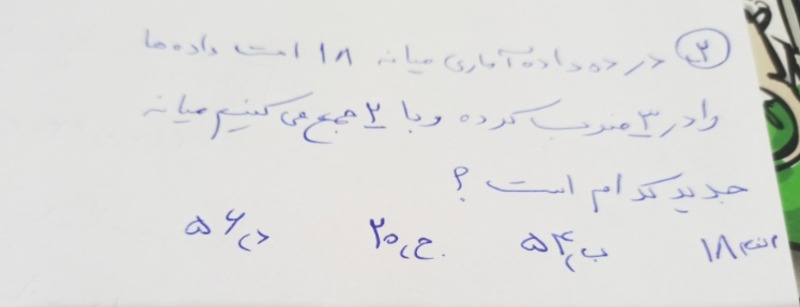 ۲ در ده داده آماری میانه ۱۸ است داده‌ها
را در ۳ ضرب کرده و با ۲ جمع می‌کنیم میانه
جدید کدام است ؟
الف) ۱۸ ب) ۵۴ ج) ۲۰ د) ۵۶